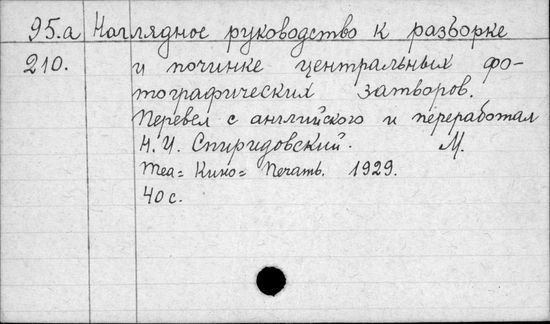 95.а Наглядное руководство к разборке
210. и починке центральных фо-
тографических затворов.
Перевел с английского и переработал
Н. И. Спиридовский. М.
Теа= Кино= Печать. 1929.
40 с.